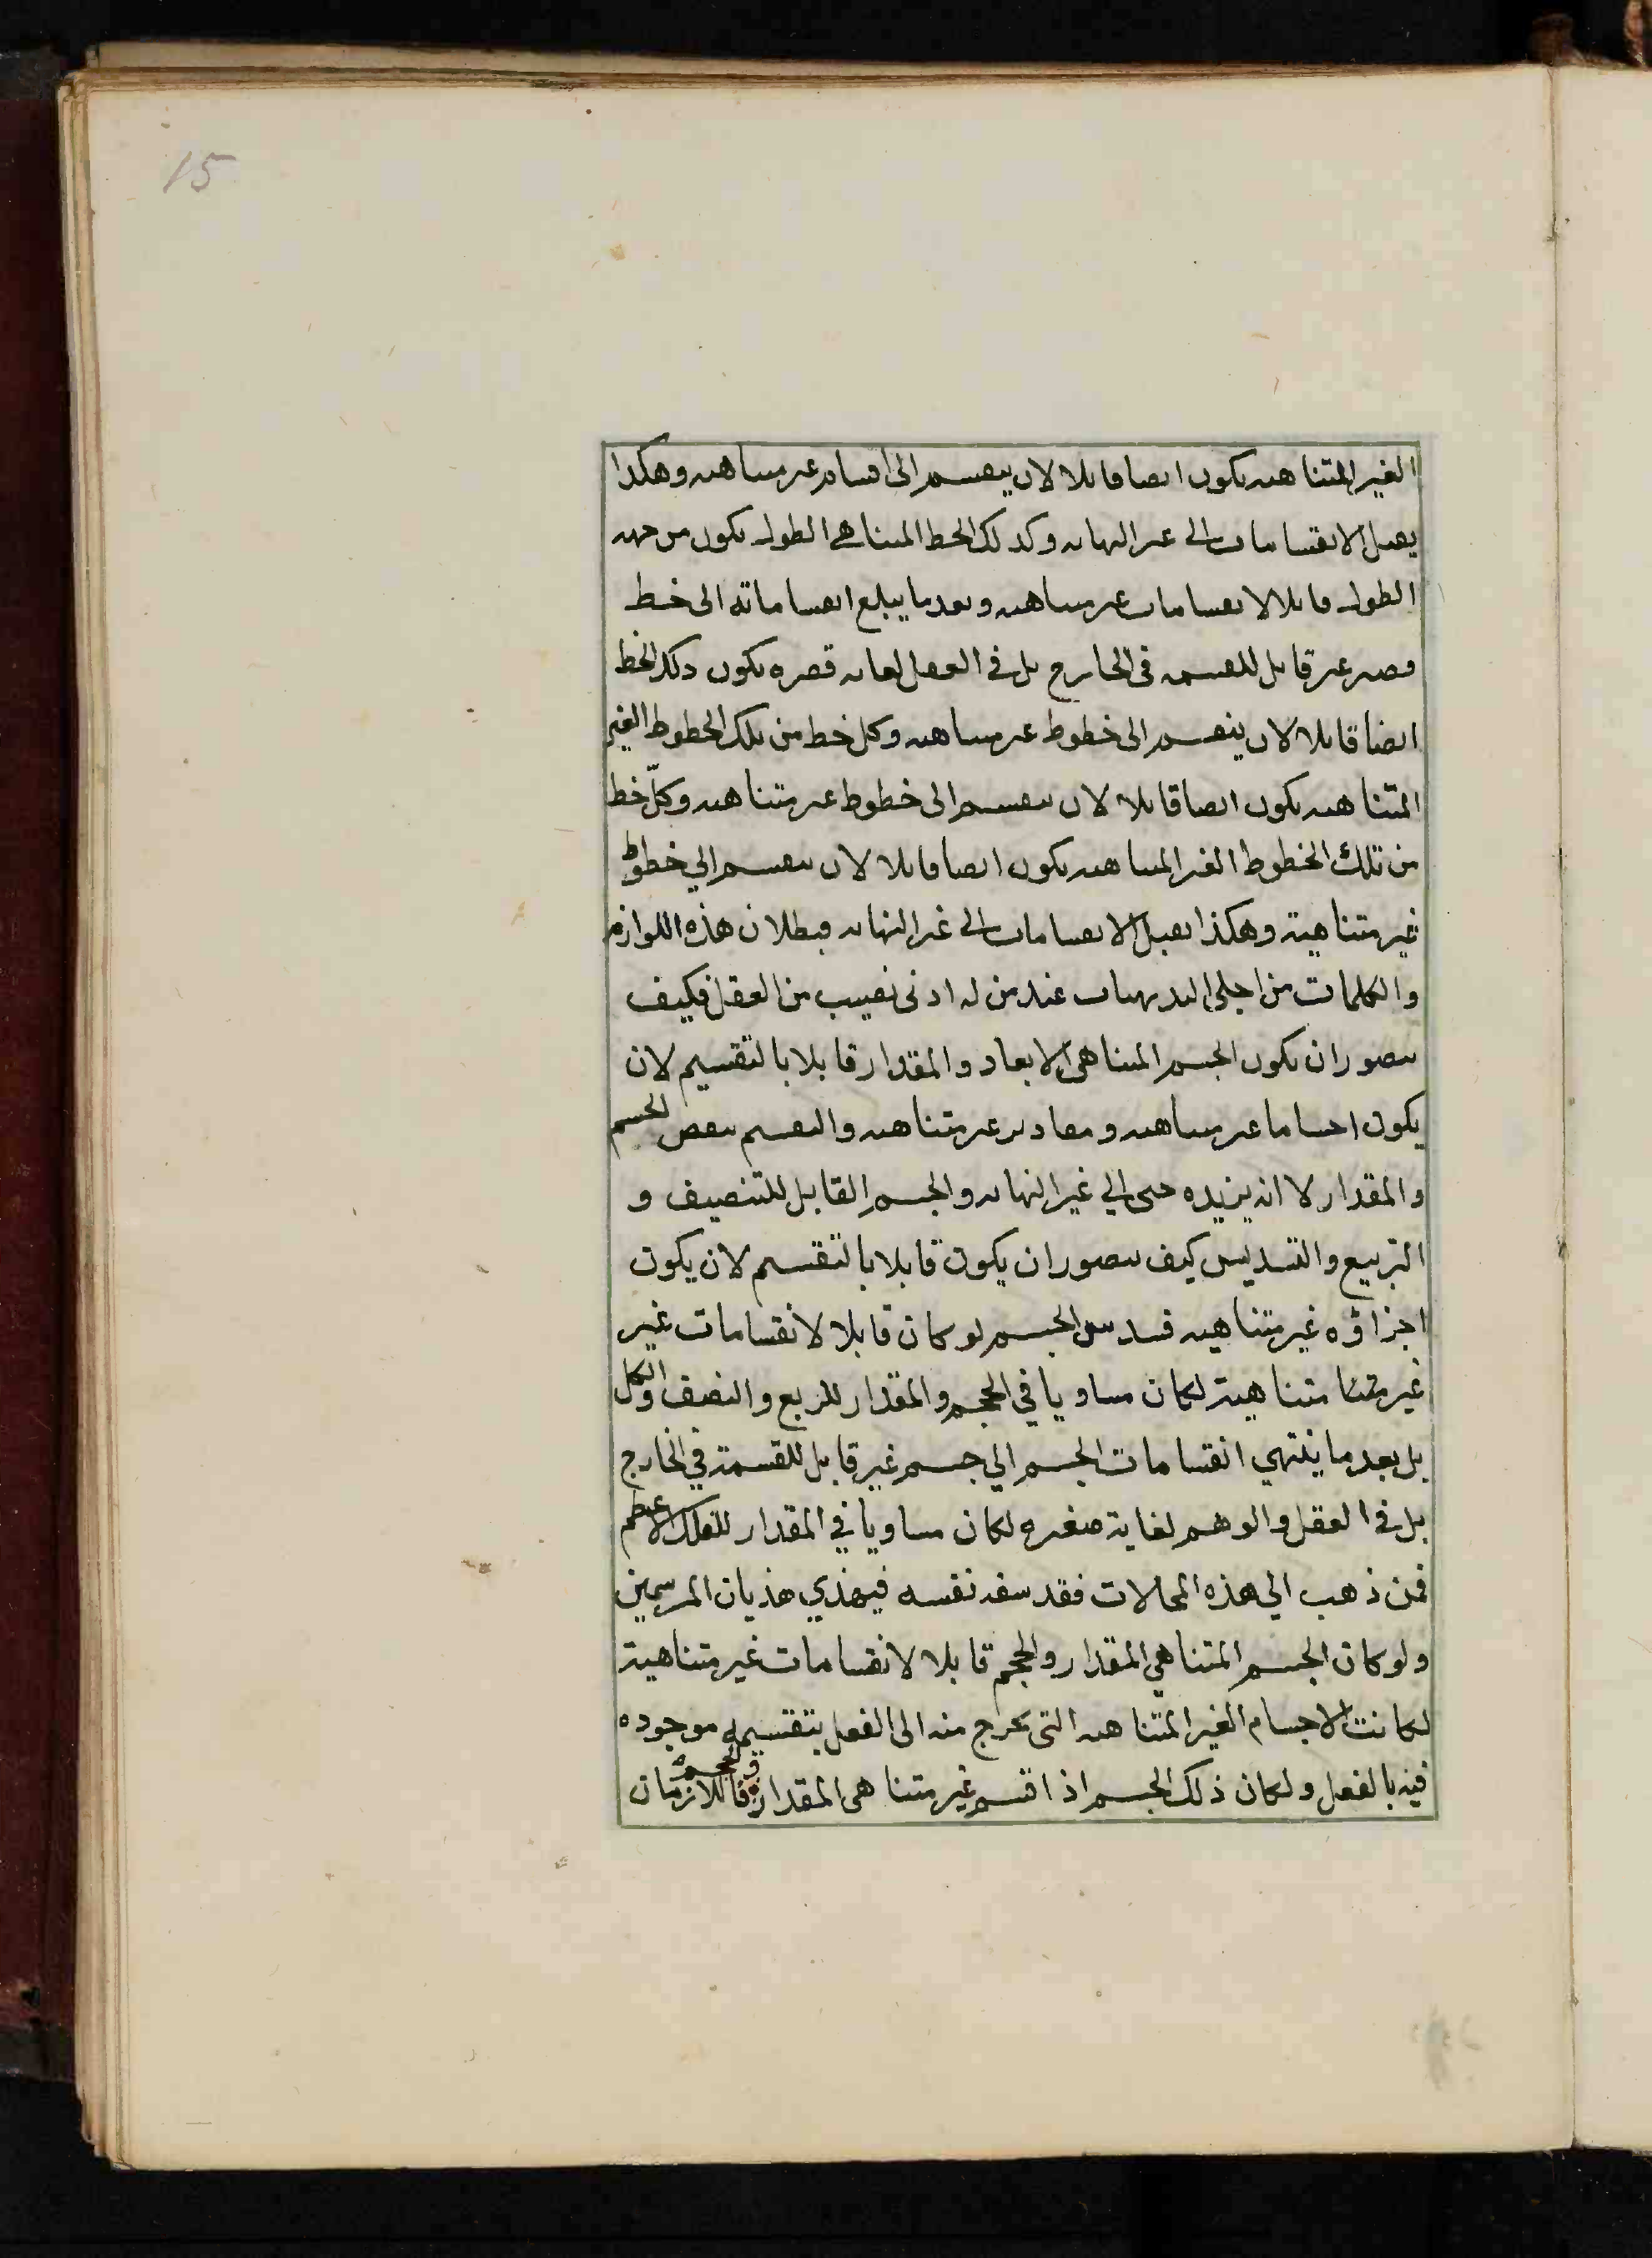 15
الغير المتناهية يكون ايضا قابلا لان ينقسم الى اقسام غير متناهية وهكذا
يقبل الانقسامات الى غير النهاية وكذلك الخط المتناهي الطول يكون من جهة
الطول قابلا لانقسامات غير متناهية وبعد ما يبلغ انقساماته الى خط
قصير غير قابل للقسمة في الخارج بل في العقل لغاية قصره يكون ذلك الخط
ايضا قابلا لان ينقسم الى خطوط غير متناهية وكل خط من تلك الخطوط الغير
المتناهية يكون ايضا قابلا لان ينقسم الى خطوط غير متناهية وكلّ خط
من تلك الخطوط الغير المتناهية يكون ايضا قابلا لان ينقسم الي خطوط
غير متناهية وهكذا يقبل الانقسامات الى غير النهاية فبطلان هذه اللوازم
والكلمات من اجلى البديهيات عند من له ادنى نصيب من العقل فكيف
يتصور ان يكون الجسم المتناهي الابعاد والمقدار قابلا بالتقسيم لان
يكون اجساما غير متناهية ومقادير غير متناهية والتقسيم ينقص الجسم
والمقدار لا انه يزيده حتى الي غير النهاية والجسم القابل للتنصيف و
التربيع والتسديس كيف يتصور ان يكون قابلا بالتقسيم لان يكون
اجزاؤه غير متناهية فسدس الجسم لو كان قابلا لانقسامات غير
غير متنا متناهية لكان مساويا في الحجم والمقدار للربع والنصف والكل
بل بعد ما ينتهي انقسامات الجسم الي جسم غير قابل للقسمة في الخارج
بل في العقل والوهم لغاية صغره لكان مساويا في المقدار للفلك الاعظم
فمن ذهب الي هذه المحالات فقد سفه نفسه فيهذي هذيان المبرسمين
ولو كان الجسم المتناهي المقدار والحجم قابلا لانقسامات غير متناهية
لكانت الاجسام الغير المتناهية التي يخرج منه الى الفعل بتقسيمه موجوده
فيه بالفعل ولكان ذلك الجسم اذا قسم غير متناهي المقدار والحجم